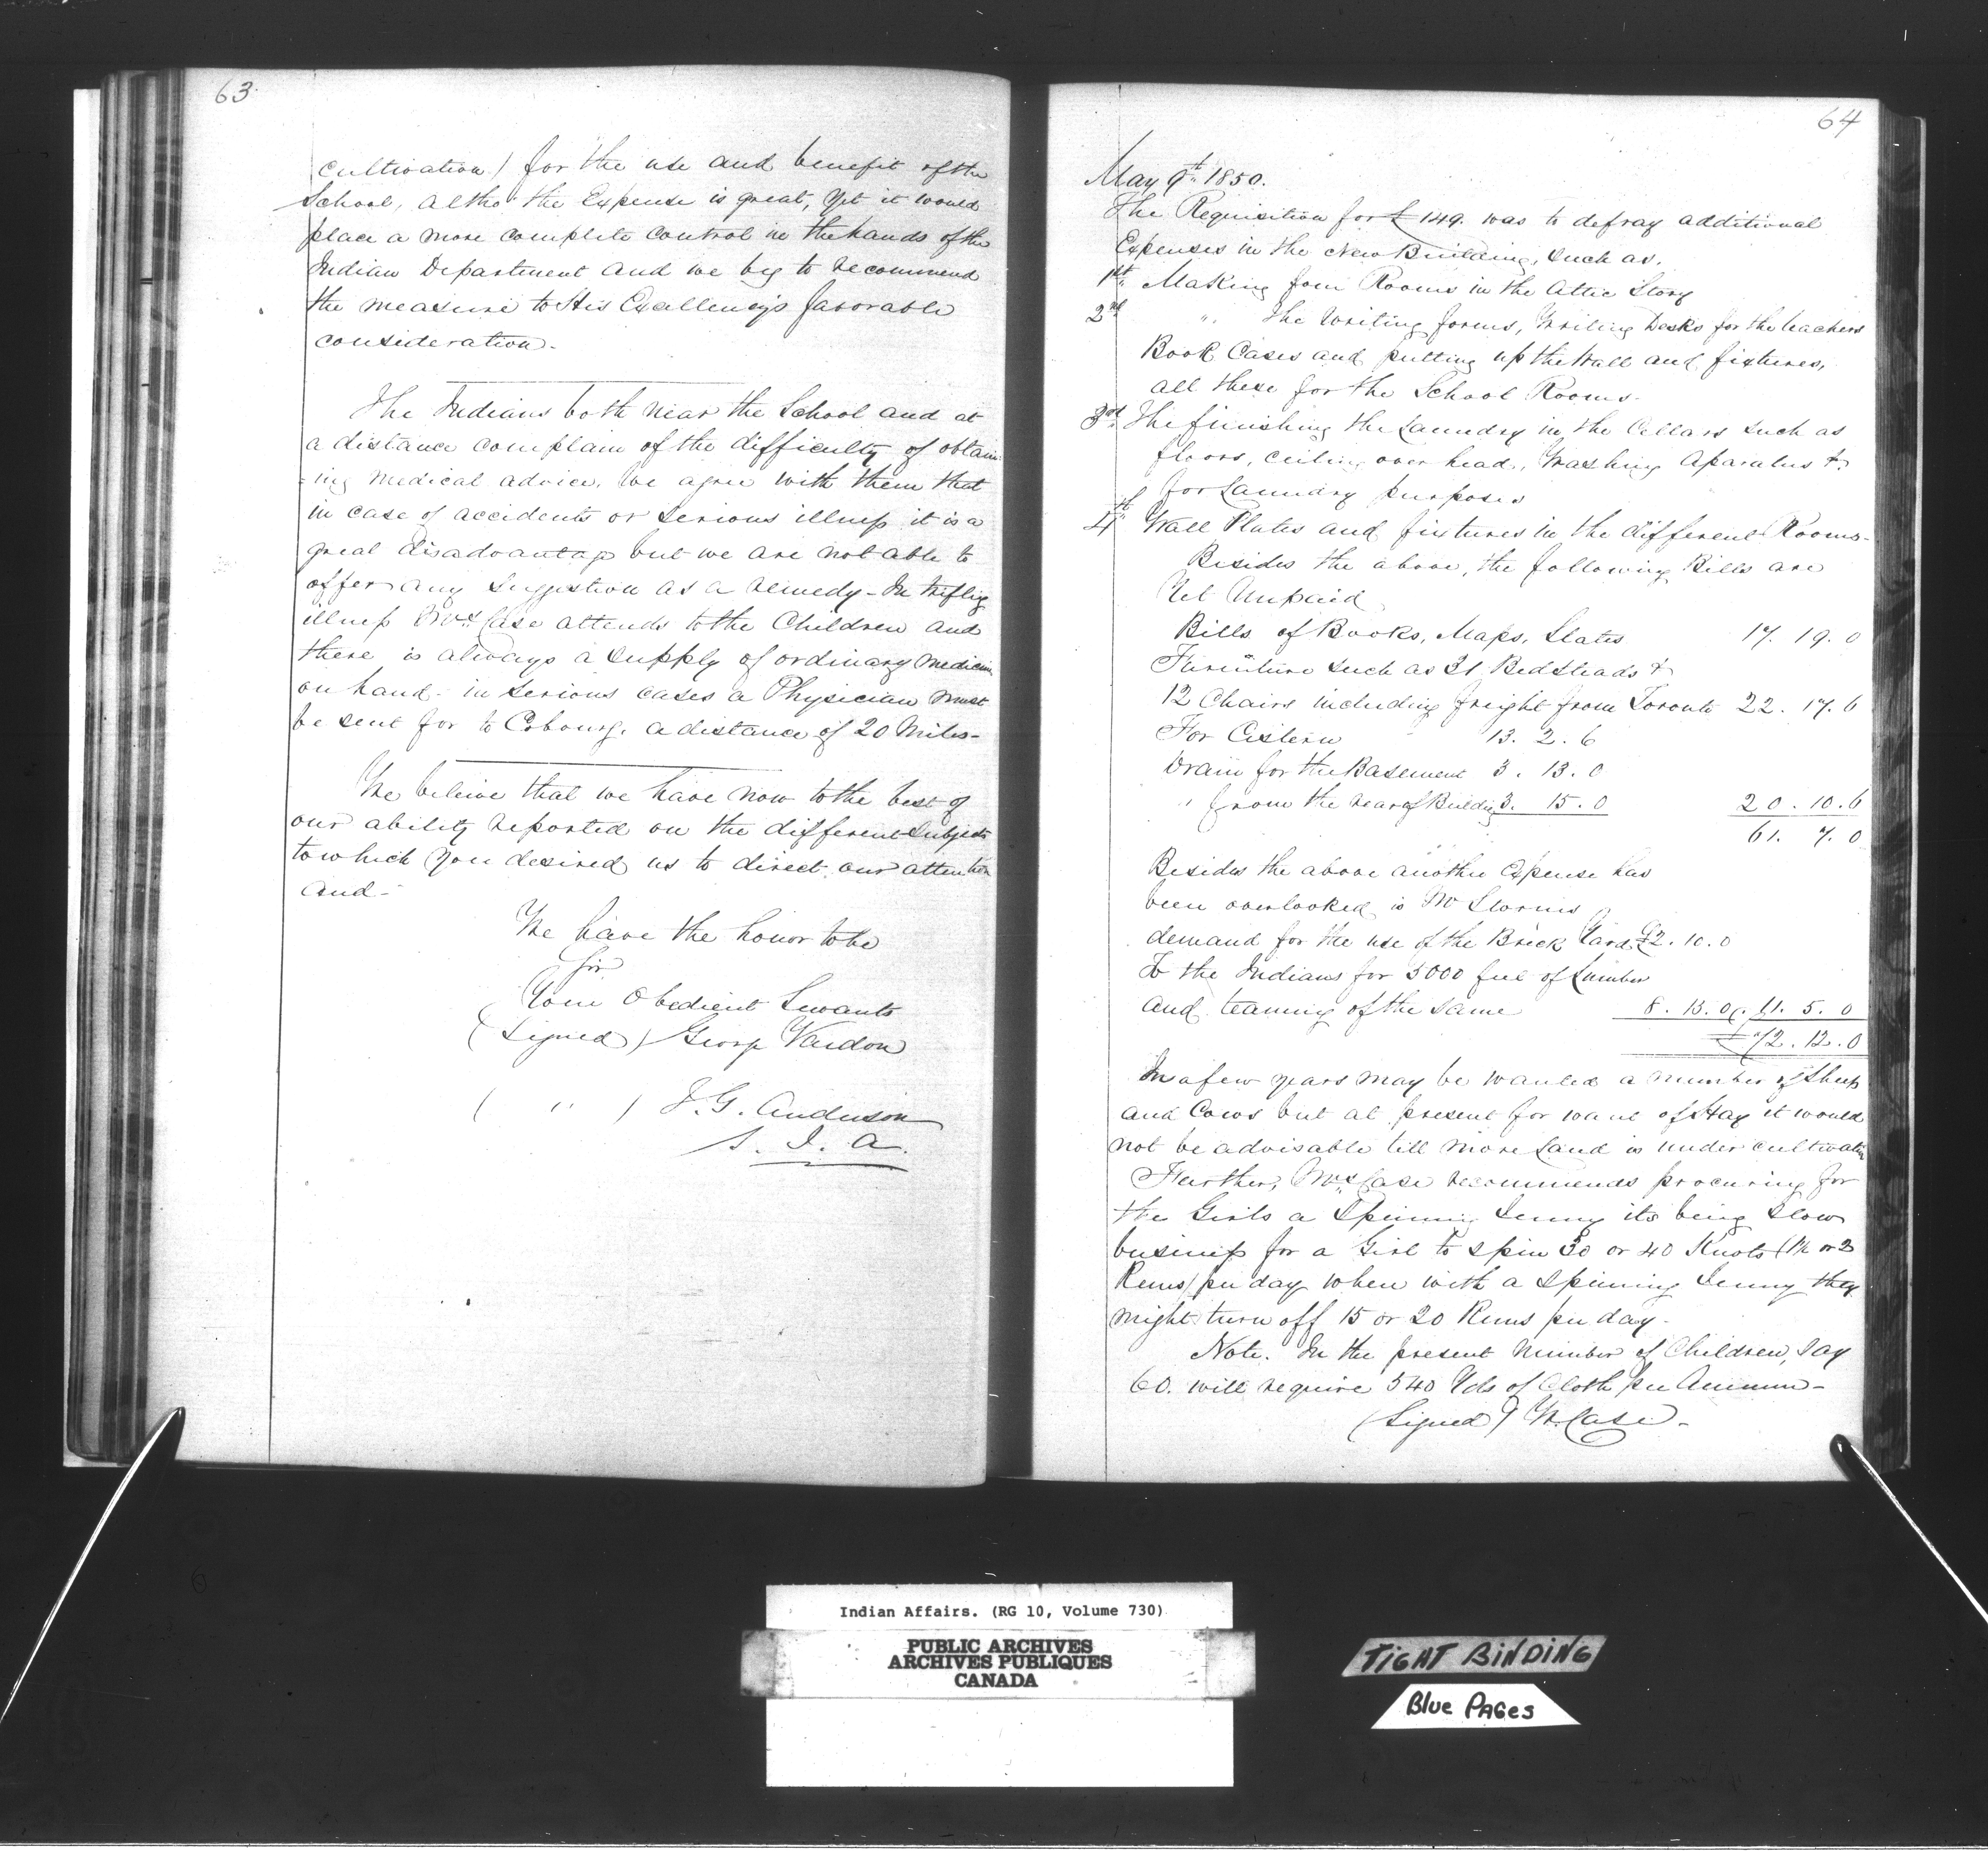 63
cultivation) for the use and benefit of the
School, altho' the Expense is great, yet it would
place a more complete control in the hands of the
Indian Department and we beg to recommend
the measure to His Excellency's favorable
consideration.
The Indians both near the School and at
a distance complain of the difficulty of obtain-
-ing medical advice. We agree with them that
in case of accidents or serious illness it is a
great disadvantage but we are not able to
offer any suggestion as a remedy - In trifling
illness Mrs Case attends to the Children and
there is always a supply of ordinary medicine
on hand - in serious cases a Physician must
be sent for to Cobourg, a distance of 20 Miles -
We believe that we have now to the best of
our ability reported on the different Subjects
to which you desired us to direct our attention
and -
We have the honor to be
Sir
Your Obedient Servants
(Signed) George Vardon
( " ) T. G. Anderson
S. I. A.
64
May 9th 1850.
The Requisition for £149. was to defray additional
Expenses in the New Building, such as,
1st Making four Rooms in the Attic Story
2nd " The Writing forms, Writing Desks for the teachers
Book Cases and putting up the Wall and fixtures,
all these for the School Rooms -
3rd The finishing the Laundry in the Cellars such as
floors, ceiling over head, Washing Aparatus &c
for Laundry purposes
4th Wall Plates and fixtures in the different Rooms -
Besides the above, the following Bills are
Yet Unpaid
Bills of Books, Maps, Slates 17. 19. 0
Furniture such as 31 Bedsteads &
12 Chairs including freight from Toronto 22. 17. 6
For Cistern 13. 2. 6
Drain for the Basement 3. 13. 0
" from the rear of Building 3. 15. 0 20. 10. 6
61. 7. 0
Besides the above another Expense has
been overlooked is Mr Storms
demand for the use of the Brick Yard £2. 10. 0
To the Indians for 5000 feet of Lumber
and teaming of the same 8. 15. 0 11. 5. 0
£72. 12. 0
In a few years may be wanted a number of Sheep
and Cows but at present for want of Hay it would
not be advisable till more Land is under cultivation
Further, Mrs Case recommends procuring for
the Girls a Spinning Jenny its being slow
business for a Girl to spin 30 or 40 Knots (1½ or 2
Runs) per day when with a Spinning Jenny they
might turn off 15 or 20 Runs per day -
Note. In the present number of Children, say
60. will require 540 Yds of Cloth per Annum -
(Signed) W. Case -
Indian Affairs. (RG 10, Volume 730)
PUBLIC ARCHIVES
ARCHIVES PUBLIQUES
CANADA
TIGHT BINDING
Blue PAGes